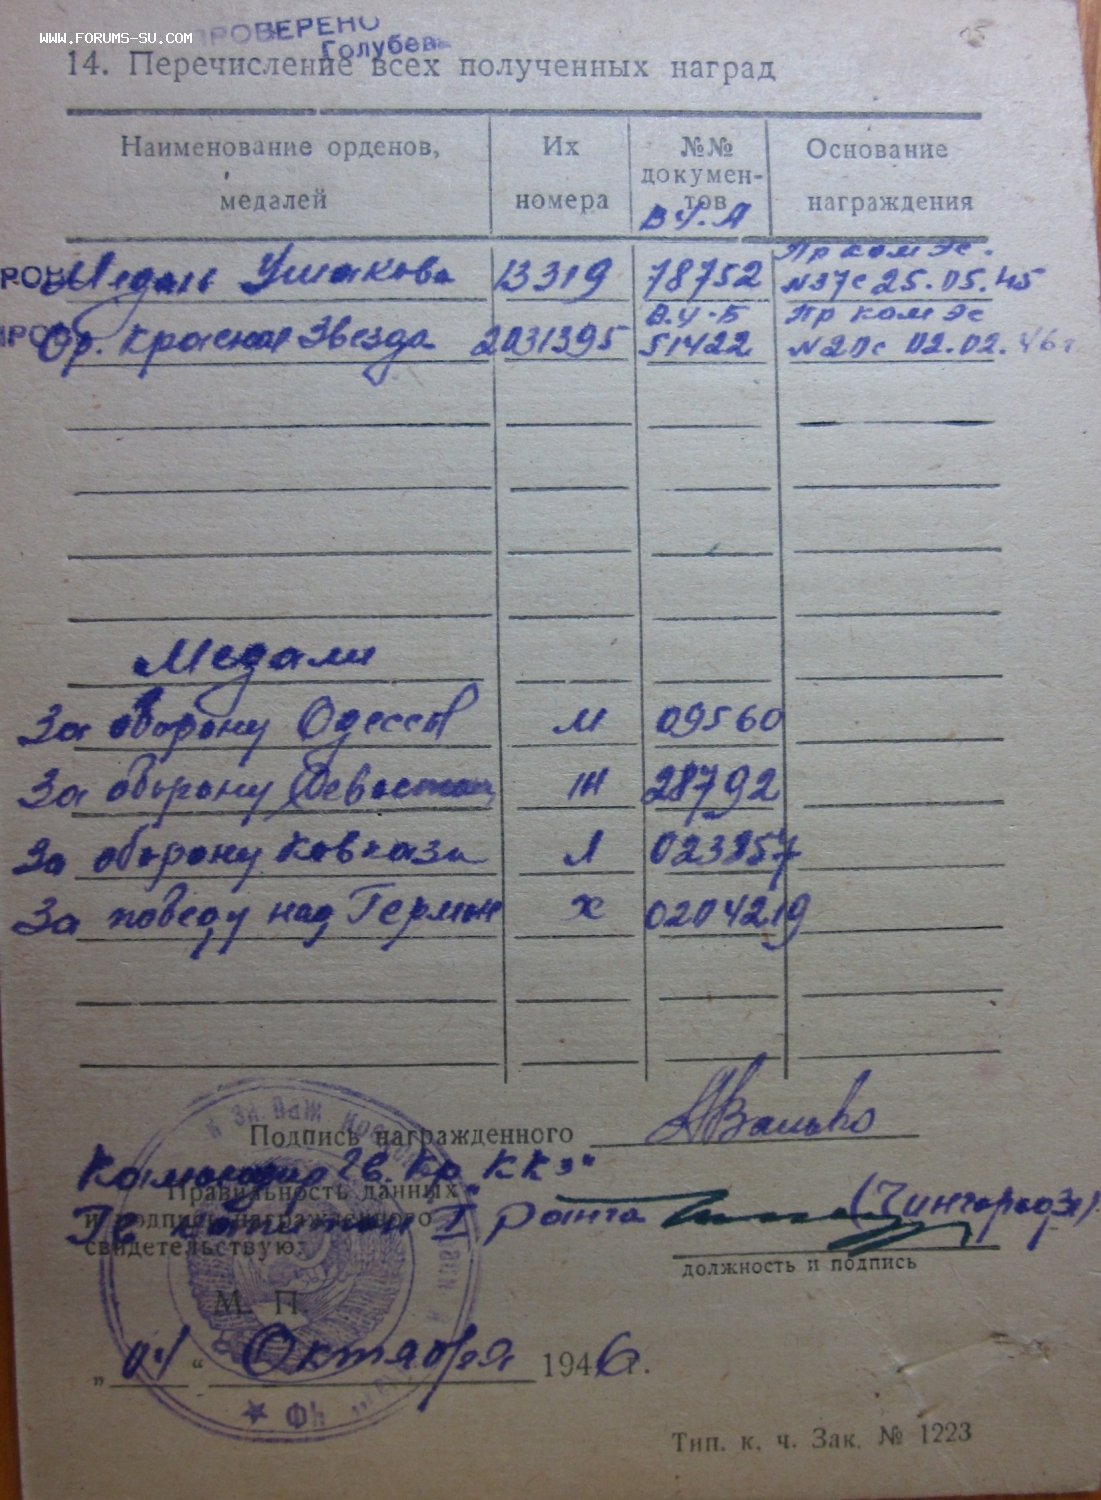 www.forums-su.com
ПРОВЕРЕНО
Голубев
14. Перечисление всех полученных наград
Наименование орденов, медалей
Их номера
№№ документов
Основание награждения
В Ч. А
Пр ком Эс.
Медаль Ушакова 13319 78752 №37с 25.05.45
В.Ч-Б Пр ком Эс
Ор. Красная Звезда 2031395 51422 №20с 02.02.46г
Медали
За оборону Одессы М 09560
За оборону Севастоп Н 28792
За оборону Кавказа Л 023857
За победу над Герман Х 0204219
Подпись награжденного
Командир Гв. Кр. ККз"
Правильность данных
и подпись награжденного
Гв капитан I ранга
свидетельствую:
должность и подпись
М. П.
„ 04 “ Октября 1946 г.
Тип. к. ч. Зак. № 1223